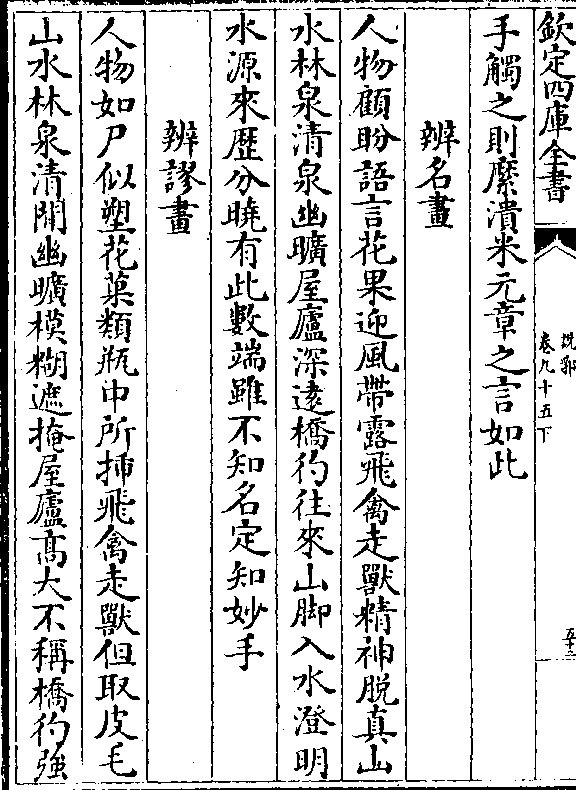 欽定四庫全書
說郛
卷九十五下
手觸之則糜潰米元章之言如此
辨名畫
人物顧盼語言花果迎風帶露飛禽走獸精神脫真山
水林泉清泉幽曠屋廬深遠橋彴往來山脚入水澄明
水源來歷分曉有此數端雖不知名定知妙手
辨謬畫
人物如尸似塑花菓類瓶中所揷飛禽走獸但取皮毛
山水林泉清閒幽曠模糊遮掩屋廬髙大不稱橋彴強